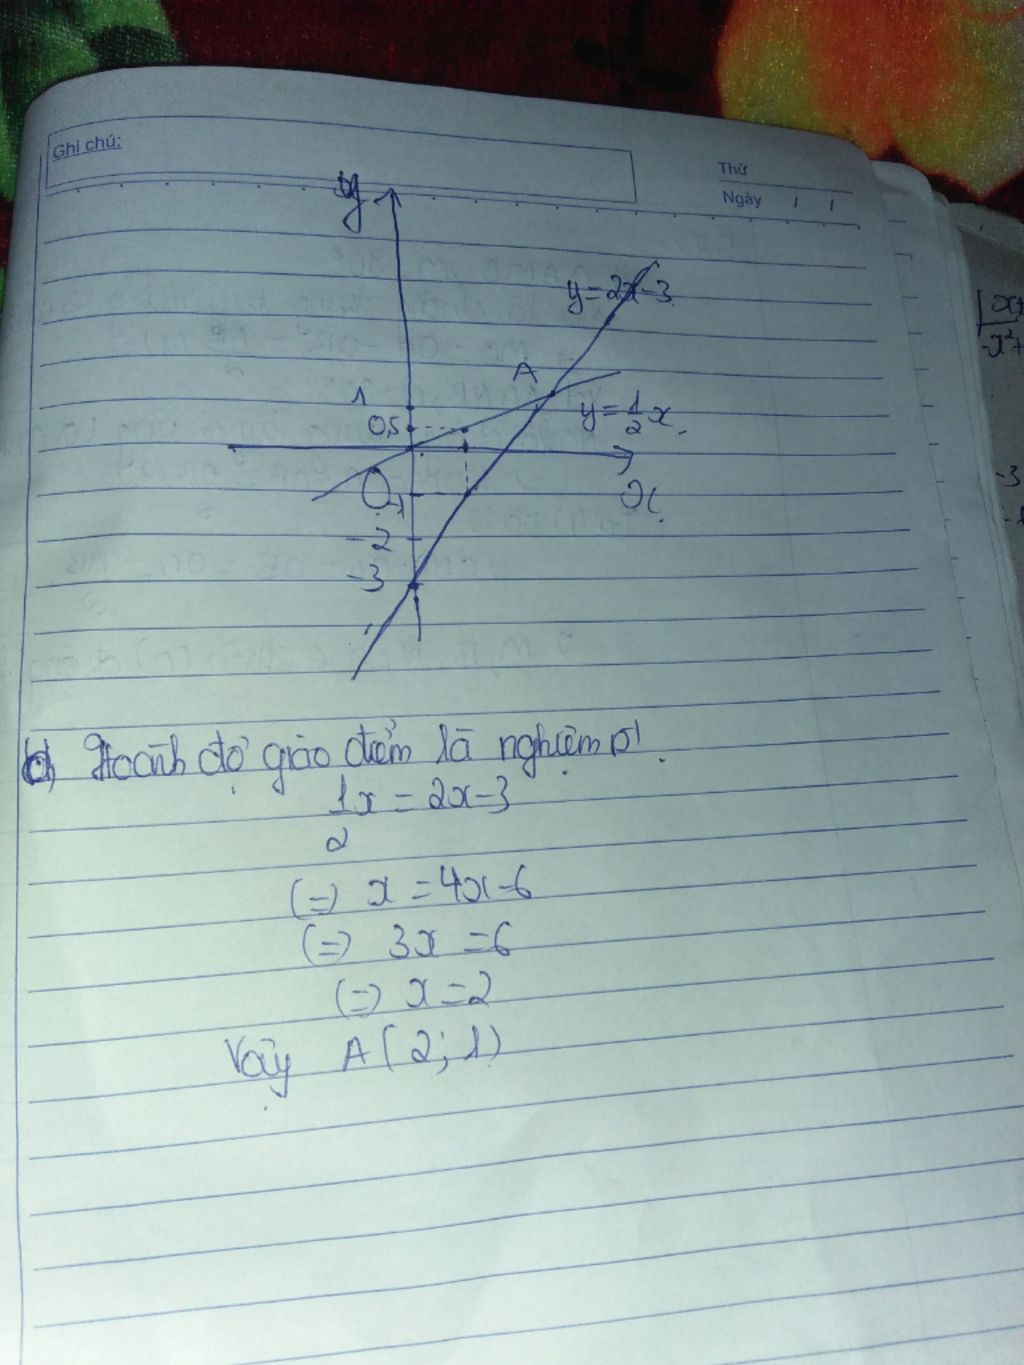 Ghi chú:
Thứ
Ngày / /
y
y=2x-3
A
1
0,5
y=\frac{1}{2}x
O
-1
x
-2
-3
b) Hoành độ giao điểm là nghiệm
\frac{1}{2}x = 2x-3
(=) x = 4x-6
(=) 3x = 6
(=) x = 2
Vậy A(2; 1)